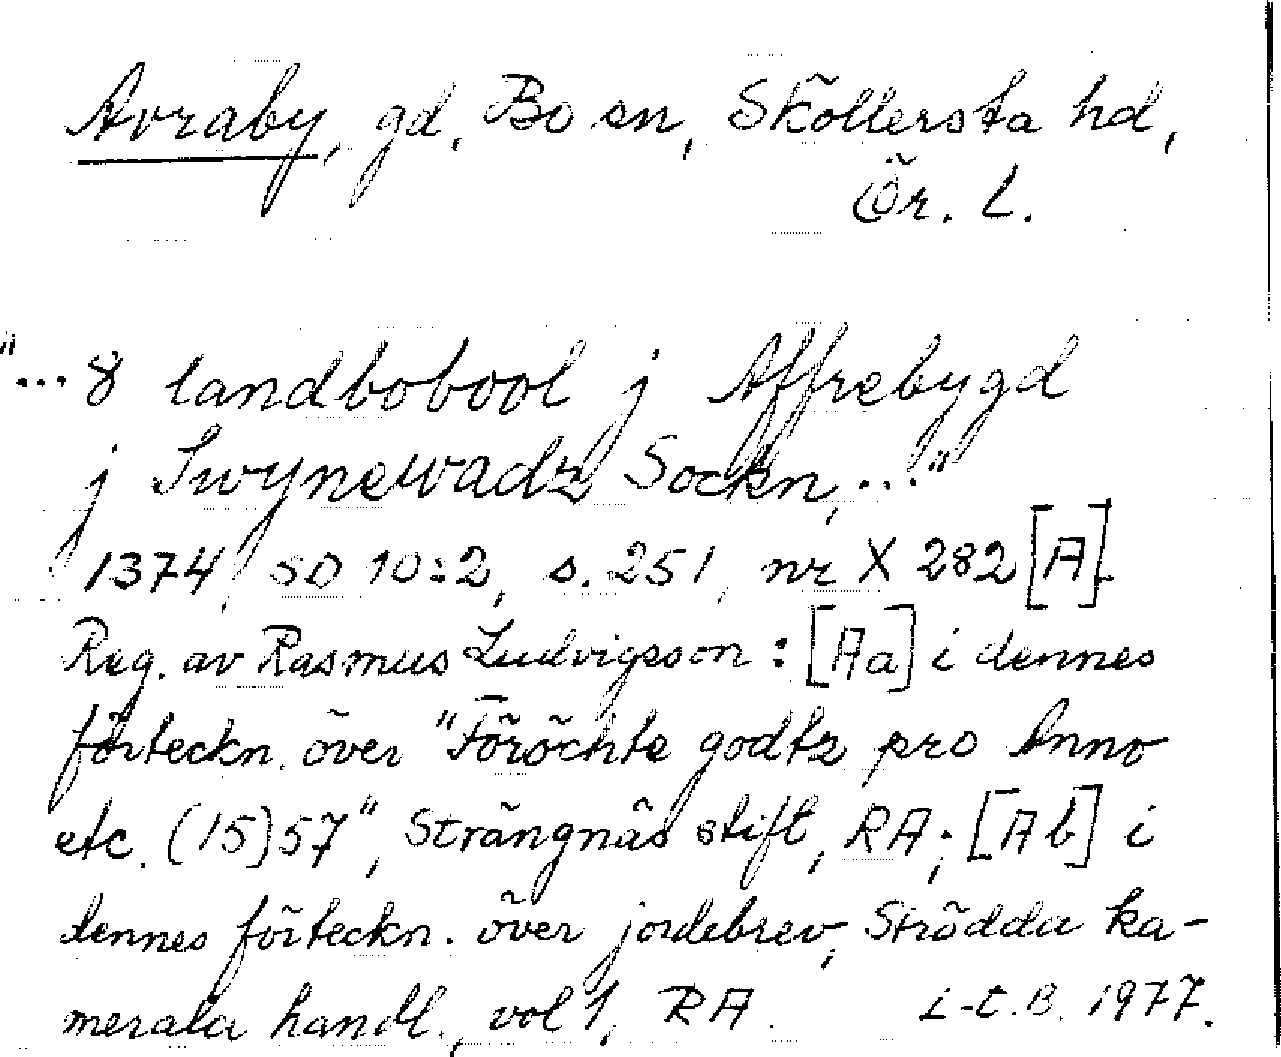 Avraby, gd, Bo sn, Sköllersta hd,
Ör. L.
"... 8 landbobool j Affrebygd
j Swynewadz Sockn, ..."
1374, SD 10:2, s. 251, nr X 282 [A].
Reg. av Rasmus Ludvigsson: [Aa] i dennes
förteckn. över "Föröchte godtz pro Anno
etc. (15)57", Strängnäs stift, RA; [Ab] i
dennes förteckn. över jordebrev, Strödda ka-
merala handl., vol 1, RA. L-E.B. 1977.